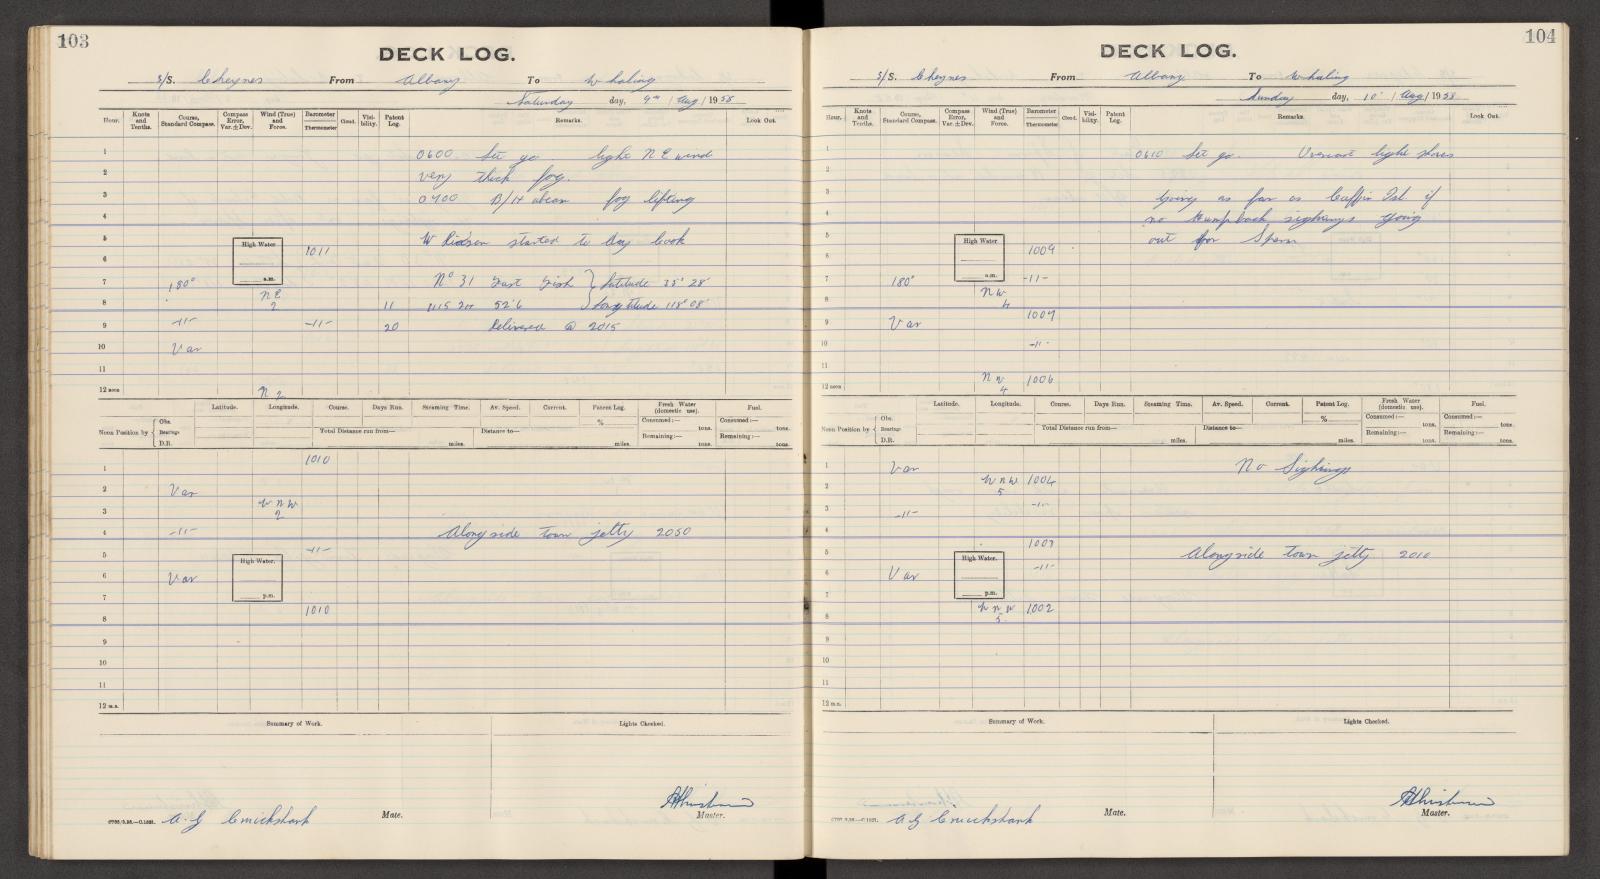 103
DECK LOG.
S/S. Cheynes From Albany To Whaling
Saturday day, 9th / Aug / 1958
Hour. Knots and Tenths. Course, Standard Compass. Compass Error, Var. ± Dev. Wind (True) and Force. Barometer Thermometer Cloud. Visibility. Patent Log. Remarks. Look Out.
1 0600 Set go light NE wind
2 very thick fog.
3 0700 B/H abeam fog lifting
4
5 High Water 1011 started to
6 a.m.
7 180° No 31 Fast Fish } Latitude 35° 28'
8 NE 2 11 1115 52'6 Longtitude 118° 08'
9 -11- -11- 20 Delivered @ 2015
10 Var
11
12 noon N 2
Latitude. Longitude. Course. Days Run. Steaming Time. Av. Speed. Current. Patent Log. Fresh Water (domestic use). Fuel.
Noon Position by { Obs. Bearings D.R. Total Distance run from— miles. Distance to— miles. % Consumed:— tons. Remaining:— tons. Consumed:— tons. Remaining:— tons.
1 1010
2 Var
3 WNW 2
4 -11- Alongside town jetty 2050
5 High Water. -11-
6 Var
7 p.m. 1010
8
9
10
11
12 m.n.
Summary of Work. Lights Checked.
A.G Cruickshank Mate. Master.
104
DECK LOG.
S/S. Cheynes From Albany To Whaling
Sunday day, 10' / Aug / 1958
Hour. Knots and Tenths. Course, Standard Compass. Compass Error, Var. ± Dev. Wind (True) and Force. Barometer Thermometer Cloud. Visibility. Patent Log. Remarks. Look Out.
1 0610 Set go. Overcast light
2
3 Going as far as Isl if
4 no Humpback sighings going
5 High Water 1009 out for Sperm
6
7 180° a.m. -11-
8 NW 4 1007
9 Var
10 -11-
11
12 noon NW 4 1006
Latitude. Longitude. Course. Days Run. Steaming Time. Av. Speed. Current. Patent Log. Fresh Water (domestic use). Fuel.
Noon Position by { Obs. Bearings D.R. Total Distance run from— miles. Distance to— miles. % Consumed:— tons. Remaining:— tons. Consumed:— tons. Remaining:— tons.
1 Var No Sighings
2 WNW 5 1004
3 -11- -11-
4 1003
5 High Water. Alongside town jetty 2010
6 Var -11-
7 p.m. WNW 1002
8 5
9
10
11
12 m.n.
Summary of Work. Lights Checked.
A G Cruickshank Mate. Master.